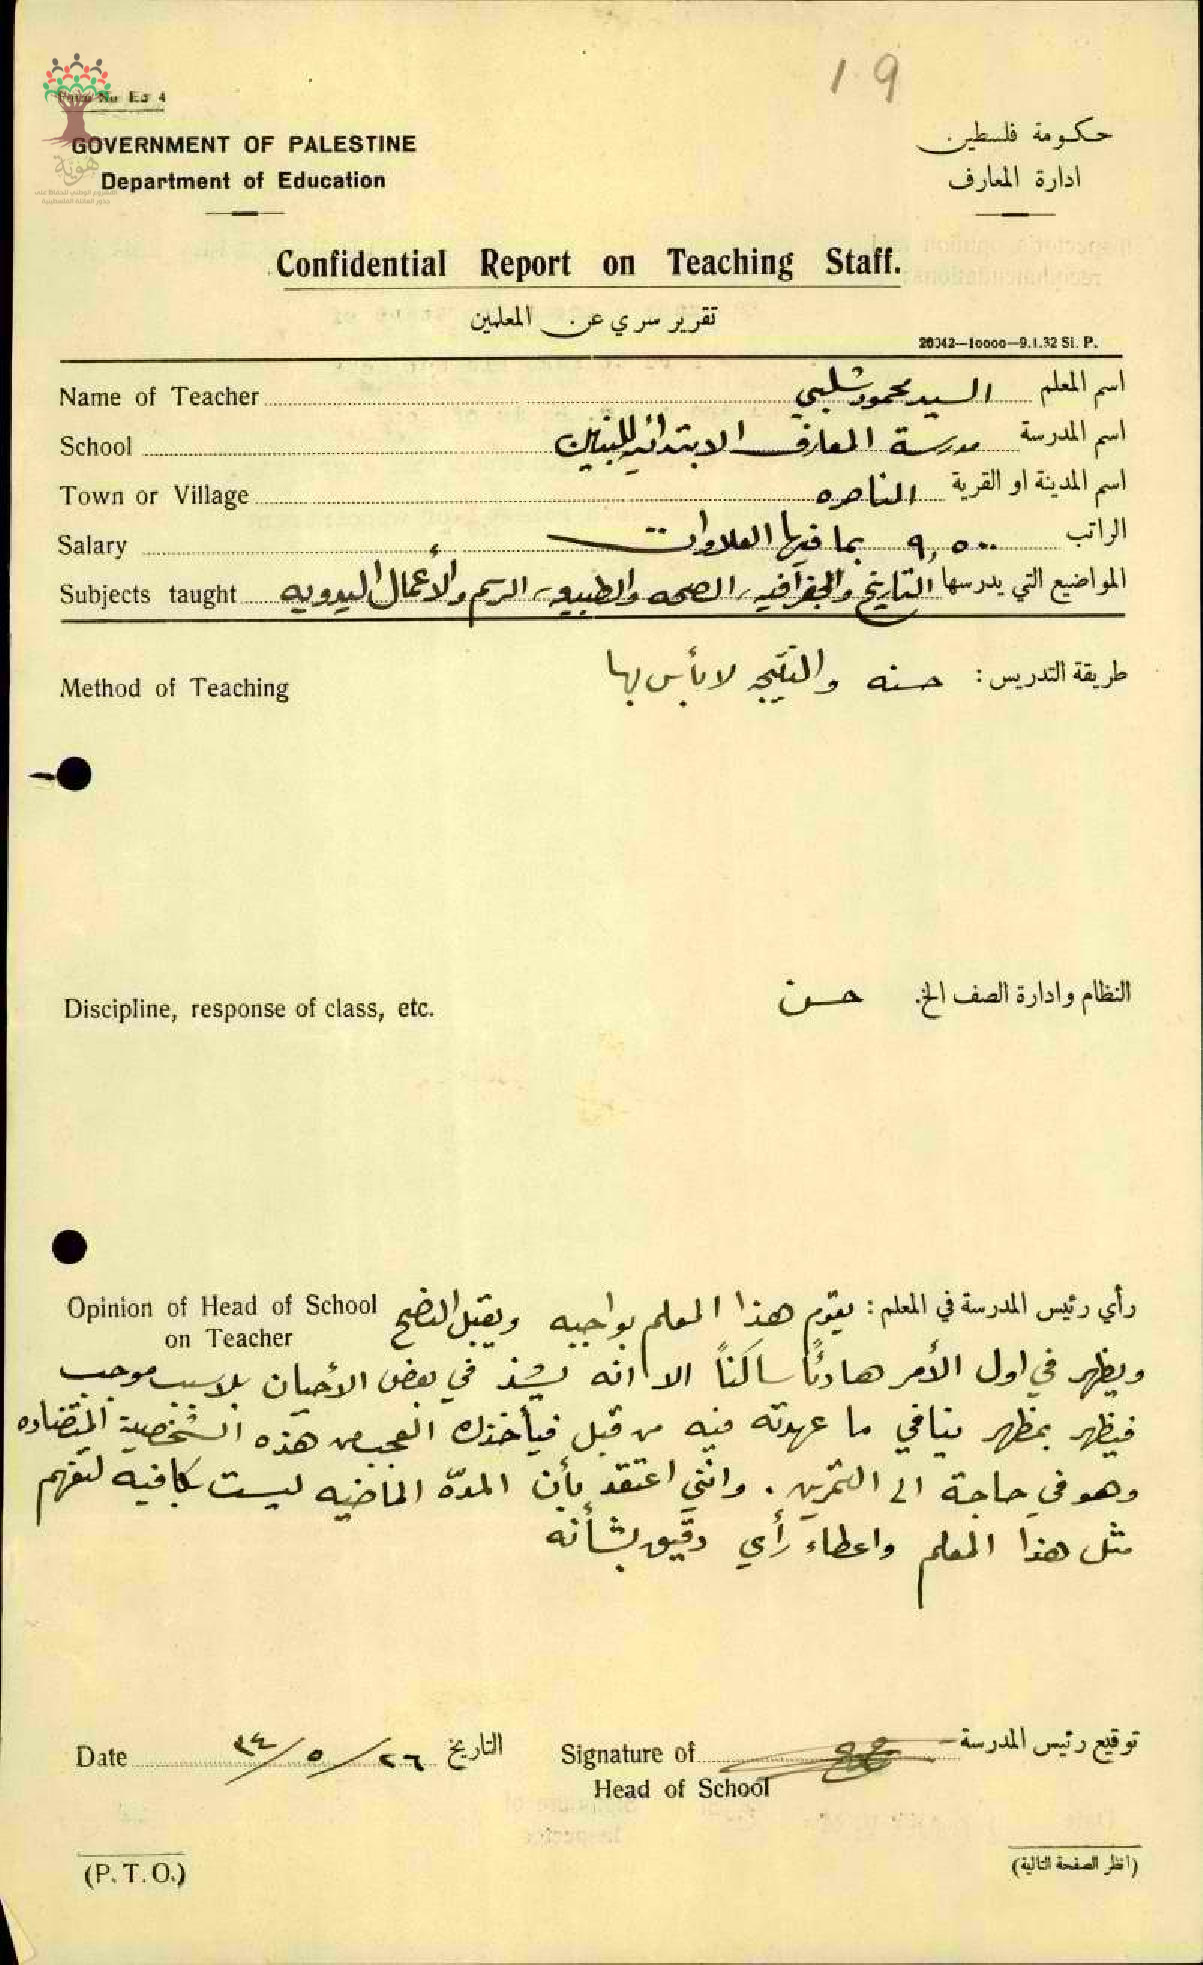 19
Form No Ed 4
GOVERNMENT OF PALESTINE
Department of Education
حكومة فلسطين
ادارة المعارف
هوية
Confidential Report on Teaching Staff.
تقرير سري عن المعلمين
20042—10000—9.1.32 Sl. P.
Name of Teacher السيد محمود شلبي اسم المعلم
School مدرسة المعارف الابتدائيه للبنين اسم المدرسة
Town or Village الناصره اسم المدينة او القرية
Salary ٩,٥٠٠ بما فيها العلاوات الراتب
Subjects taught التاريخ والجغرافيه، الصحه والطبيعه، الرسم والأعمال اليدويه المواضيع التي يدرسها
Method of Teaching طريقة التدريس: حسنه والنتيجه لا بأس بها
Discipline, response of class, etc. النظام وادارة الصف الخ. حسن
Opinion of Head of School on Teacher
رأي رئيس المدرسة في المعلم: يقوم هذا المعلم بواجبه ويقبل النصح
ويظهر في اول الأمر هادئاً ساكناً الا انه يشذ في بعض الأحيان بلا سبب موجب
فيظهر بمظهر ينافي ما عهدته فيه من قبل فيأخذك العجب من هذه الشخصية المتضاده
وهو في حاجة الى التمرين. وانني اعتقد بأن المدّه الماضيه ليست بكافيه لتفهم
مثل هذا المعلم واعطاء رأي دقيق بشأنه
Date ٢٦/٥/٣٤ التاريخ
Signature of Head of School توقيع رئيس المدرسة
(P. T. O.)
(انظر الصفحة التالية)